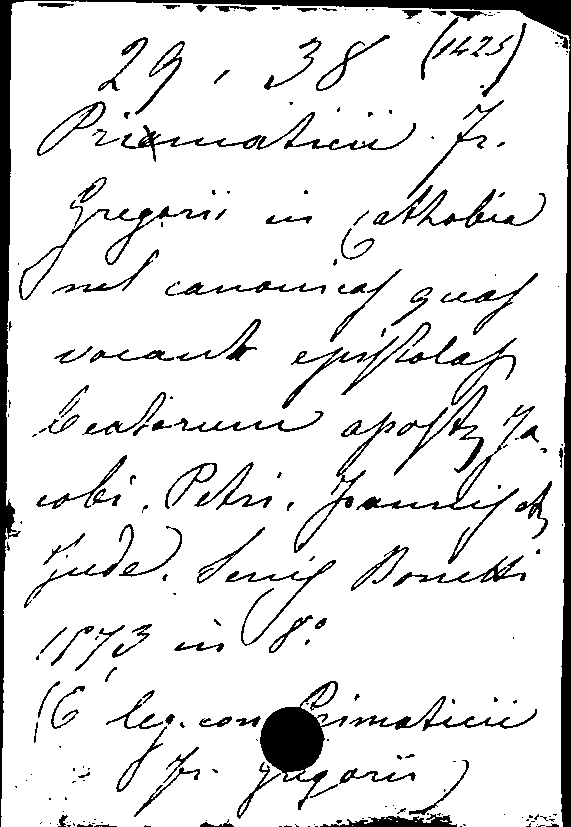 29. 38 (1425)
Primaticii Fr.
Gregorii in Cathobia
nel canonicas quas
vocant epistolas
beatorum apost. Ja
cobi. Petri. Joannis et
Jude. Senis Bonetti
1573 in 8°
(E' leg. con Primaticii
Fr. Gregorii)